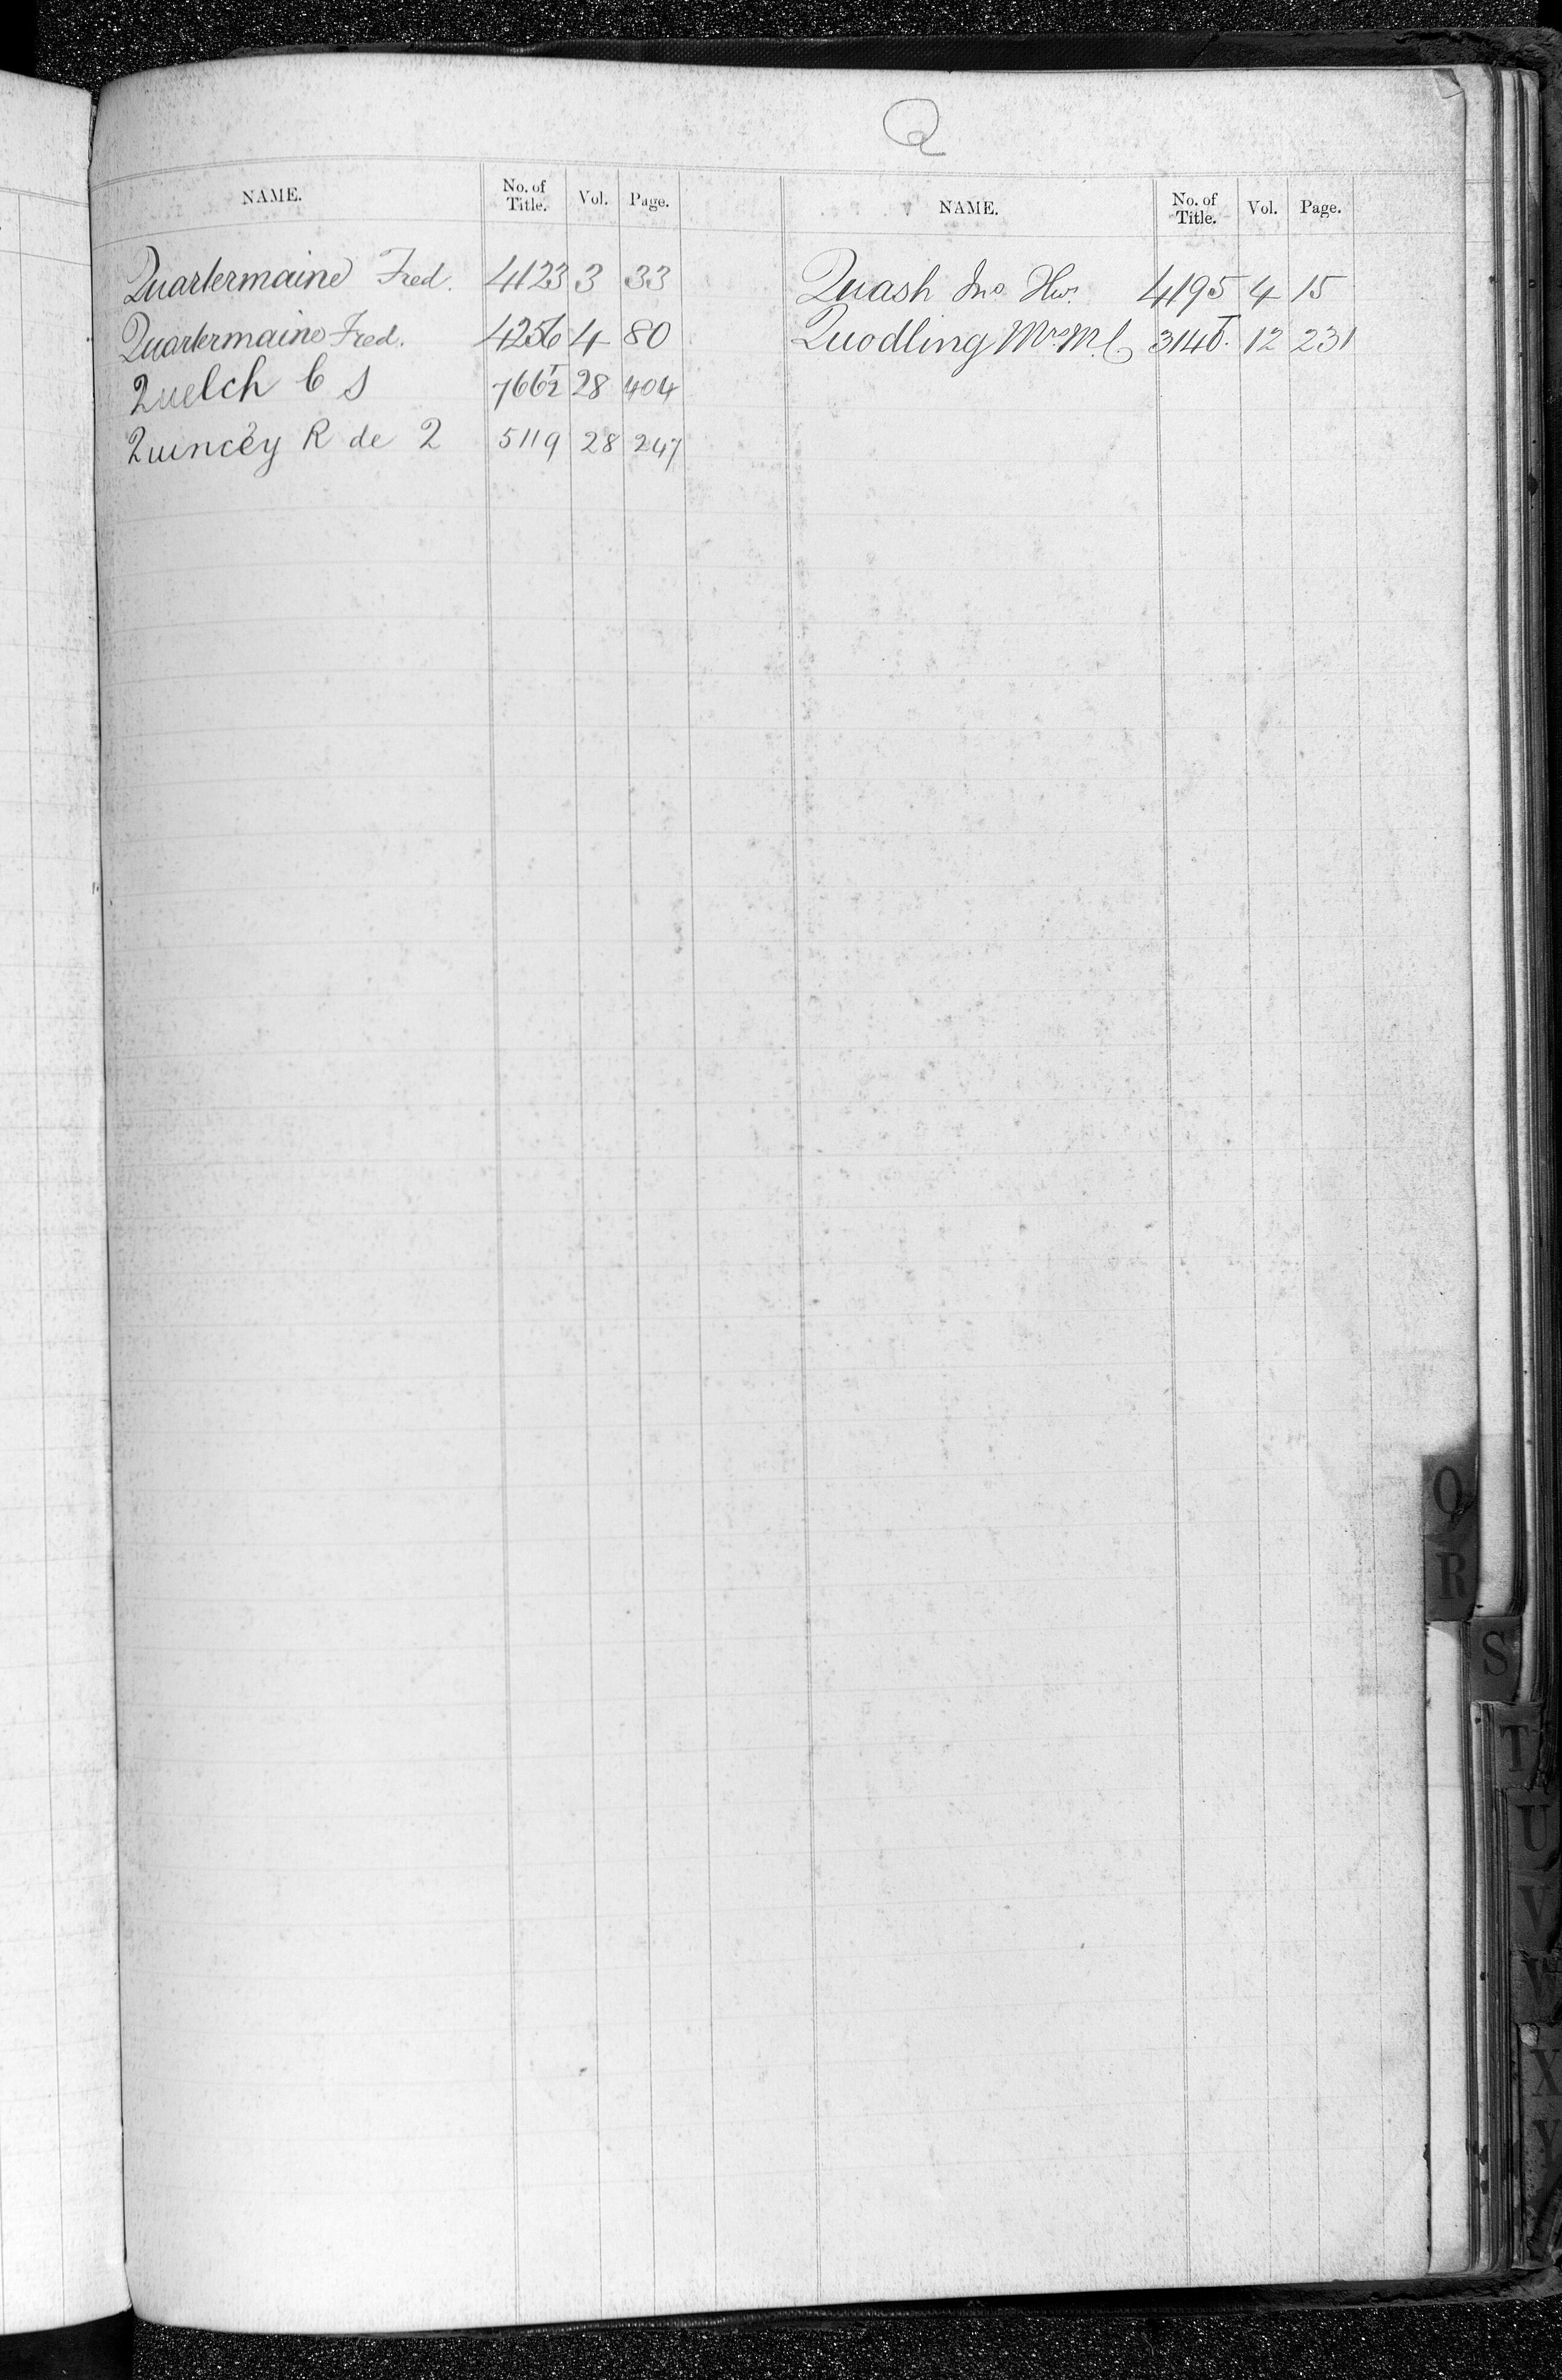 Q
NAME. No. of Title. Vol. Page.
Quartermaine Fred. 4123 3 33
Quartermaine Fred. 4256 4 80
Quelch C S 28 404
Quincey R de Q 5119 28 247
NAME. No. of Title. Vol. Page.
Quash Jno Hw. 4195 4 15
Quodling Mrs M. C. 12 231
Q
R
S
T
U
V
W
X
Y